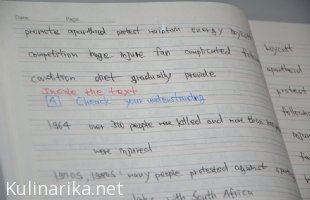 Date Page
promote apartheid protest maintain energy boycott
competition huge injure fan complicated
condition diet gradually provide
Inside the text
A Cheack your understanding
1964 over 300 people were killed and more than
were injured
1970s, 1980s many people protested against
with South Africa
boycott
apartheid
protest
Kulinarika.net